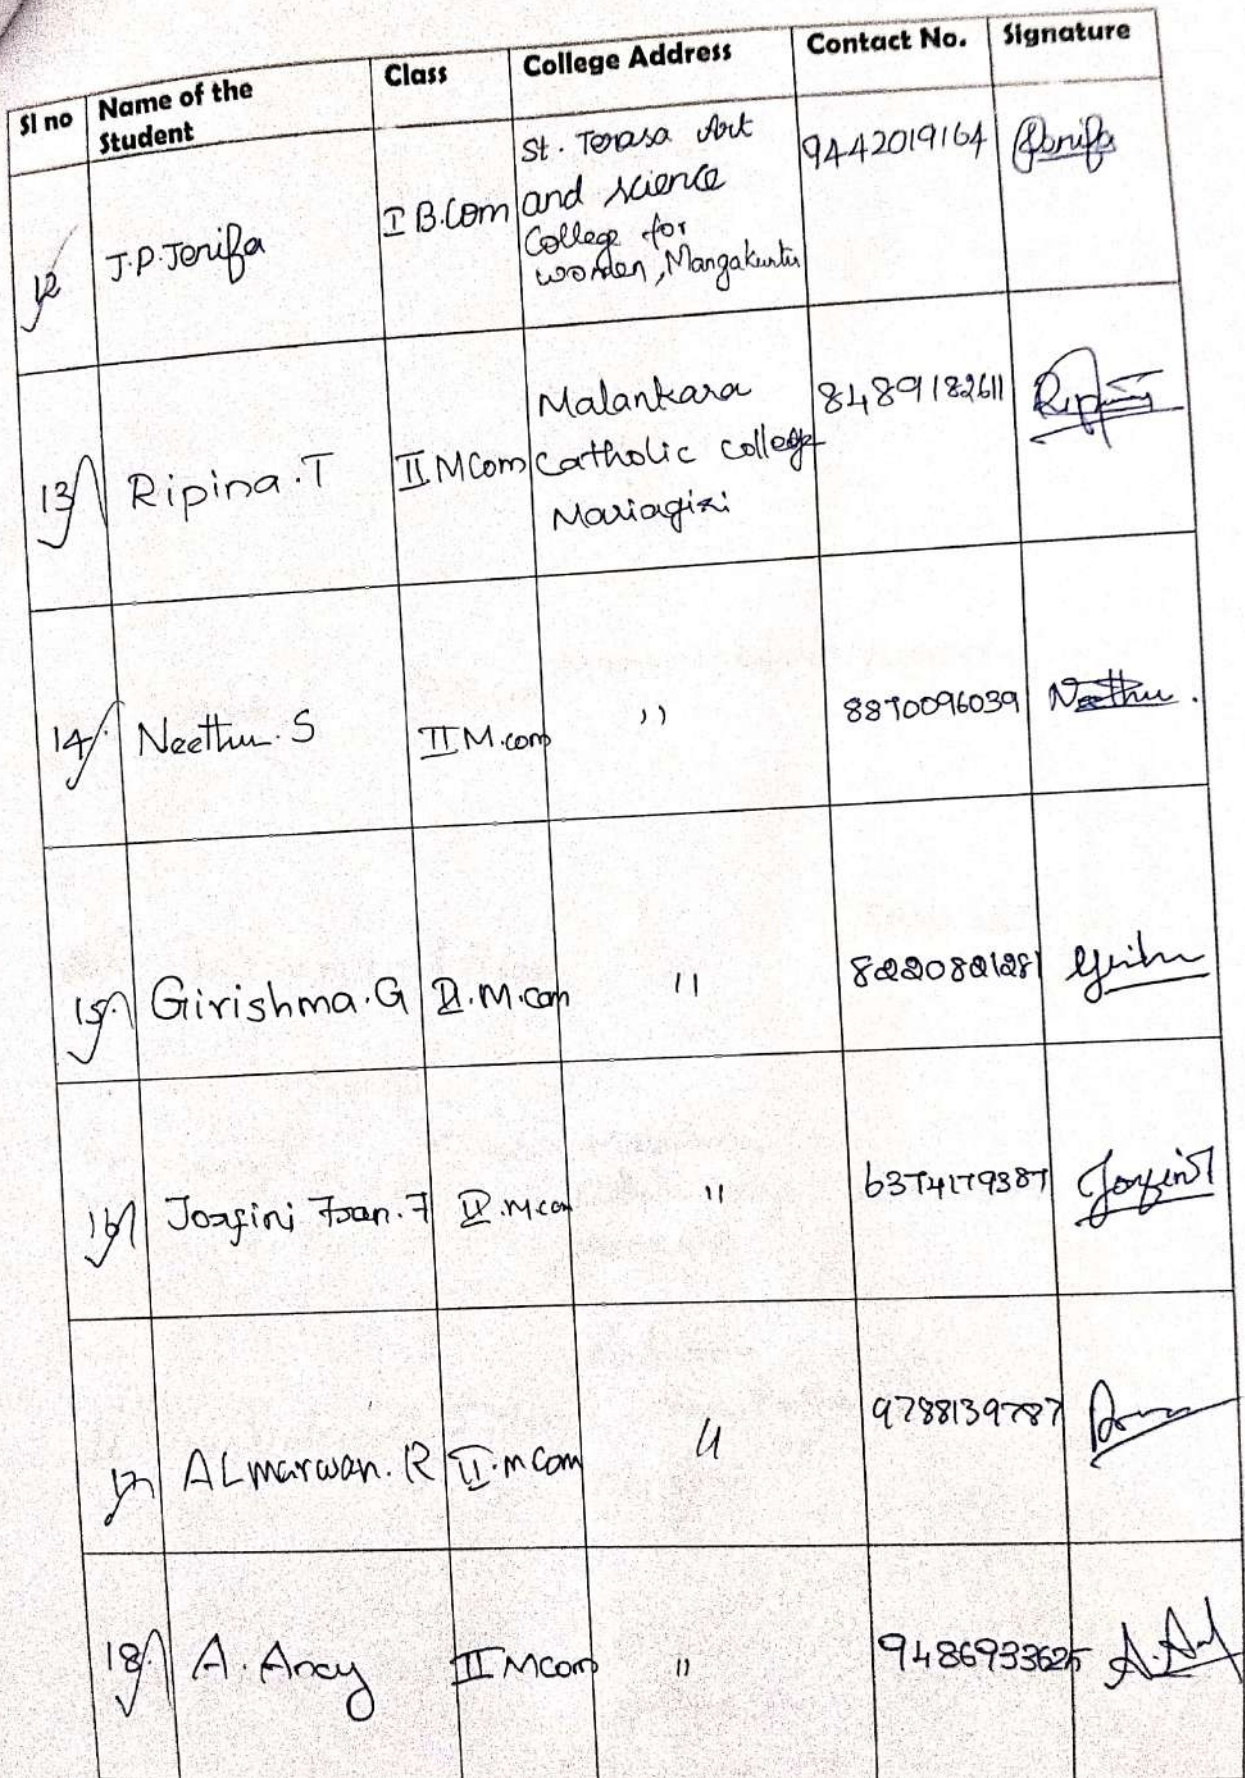 Sl no | Name of the Student | Class | College Address | Contact No. | Signature
12 | J.P.Jerifa | I B.Com | St. Terasa Art and science College for women, Mangakuntu | 9442019164 | Jerifa
13 | Ripina.T | II MCom | Malankara Catholic college Mariagiri | 8489182611 | Ripina
14. | Neethu.S | II M.com | " | 8870096039 | Neethu.
15. | Girishma.G | II.M.com | " | 8220821281
16 | II.Mcom | " | 6374179387
17 | ALmarwan.R | II.mCom | " | 9788139787
18. | A.Ancy | II Mcom | " | 9486933625